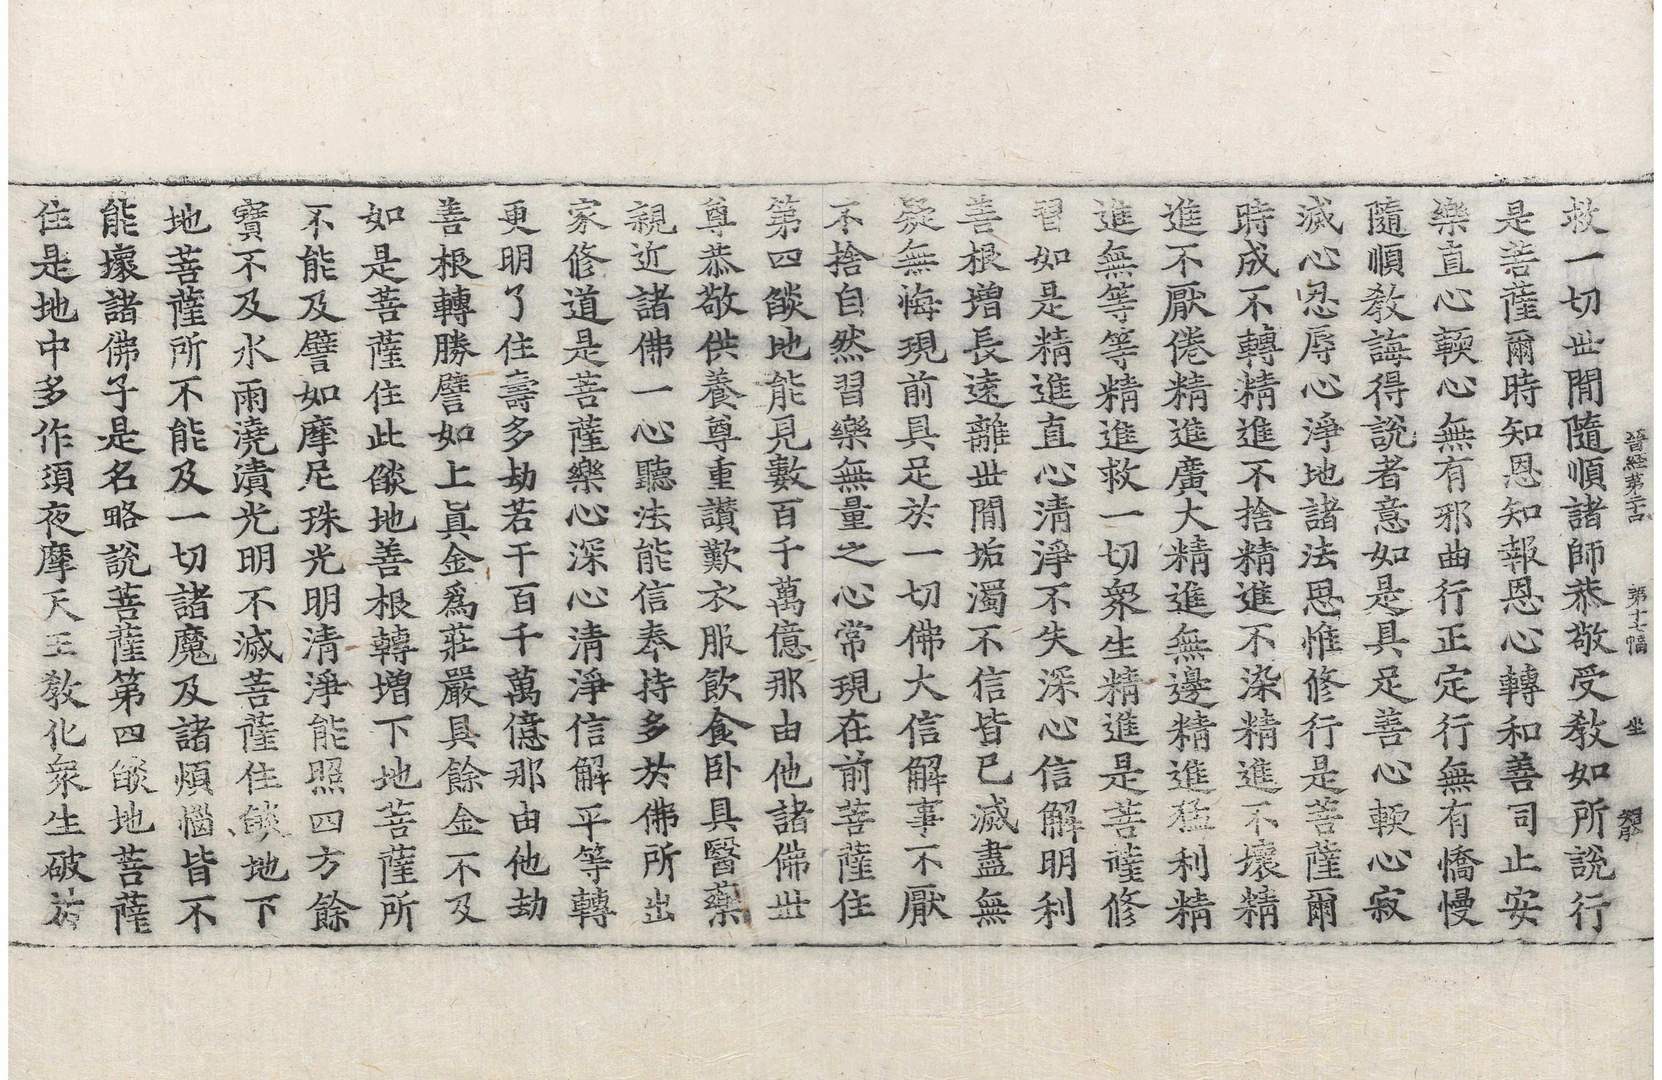 晉經第二十四 第十七幅 坐
救一切世間隨順諸師恭敬受教如所說行
是菩薩爾時知恩知報恩心轉和善同止安
樂直心軟心無有邪曲行正定行無有憍慢
隨順教誨得說者意如是具足善心軟心寂
滅心忍辱心淨地諸法思惟修行是菩薩爾
時成不轉精進不捨精進不染精進不壞精
進不厭倦精進廣大精進無邊精進猛利精
進無等等精進救一切衆生精進是菩薩修
習如是精進直心清淨不失深心信解明利
善根增長遠離世間垢濁不信皆已滅盡無
疑無悔現前具足於一切佛大信解事不厭
不捨自然習樂無量之心常現在前菩薩住
第四燄地能見數百千萬億那由他諸佛世
尊恭敬供養尊重讚歎衣服飲食卧具醫藥
親近諸佛一心聽法能信奉持多於佛所出
家修道是菩薩樂心深心清淨信解平等轉
更明了住壽多劫若干百千萬億那由他劫
善根轉勝譬如上眞金爲莊嚴具餘金不及
如是菩薩住此燄地善根轉增下地菩薩所
不能及譬如摩尼珠光明清淨能照四方餘
寶不及水雨澆漬光明不滅菩薩住燄地下
地菩薩所不能及一切諸魔及諸煩惱皆不
能壞諸佛子是名略說菩薩第四燄地菩薩
住是地中多作須夜摩天王教化衆生破於